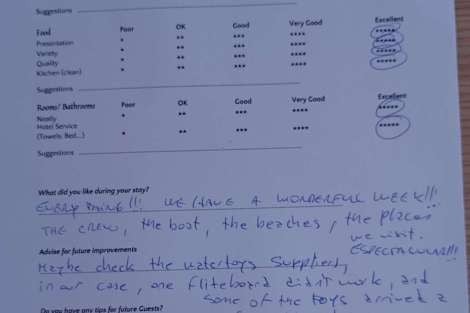 Suggestions
Food Poor OK Good Very Good Excellent
Presentation * ** *** **** *****
Variety * ** *** **** *****
Quality * ** *** **** *****
Kitchen (clean) * ** *** **** *****
Suggestions
Rooms/ Bathrooms Poor OK Good Very Good Excellent
Neatly * ** *** **** *****
Hotel Service
(Towels, Bed...) * ** *** **** *****
Suggestions
What did you like during your stay?
EVERYTHING!!! WE HAVE A WONDERFUL WEEK!!!
THE CREW, the boat, the beaches, the places
we visit.
ESPECTACULAR!!!
Advise for future improvements
Maybe check the watertoys Suppliers,
in our case, one fliteboard didn't work, and
some of the toys arrived a
Do you have any tips for future Guests?